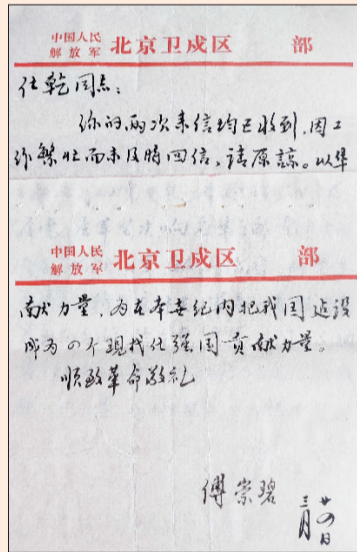 中国人民
解放军 北京卫戍区 部
仕乾同志：
你的两次来信均已收到，因工
作繁忙而未及时回信，请原谅。以华
中国人民
解放军 北京卫戍区 部
献力量，为在本世纪内把我国建设
成为四个现代化强国贡献力量。
顺致革命敬礼
傅崇碧
三月廿四日